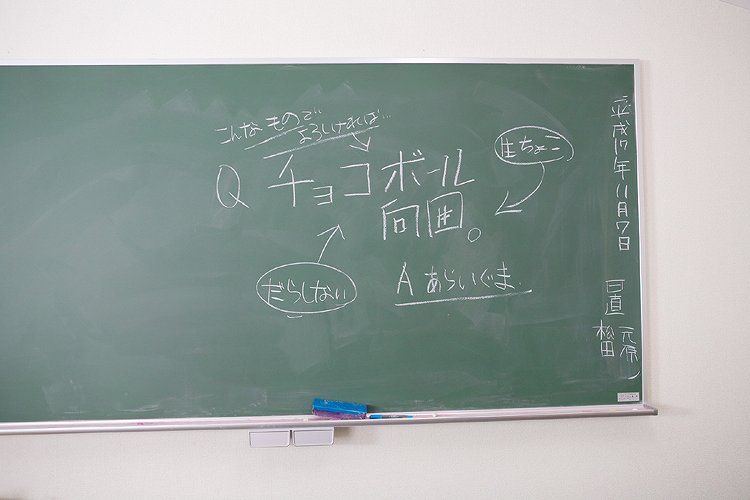 こんなもので
よろしければ…
Q チョコボール
向囲。
生ちょこ
だらしない
A あらいぐま.
平成17年11月7日
日直
元原
松田